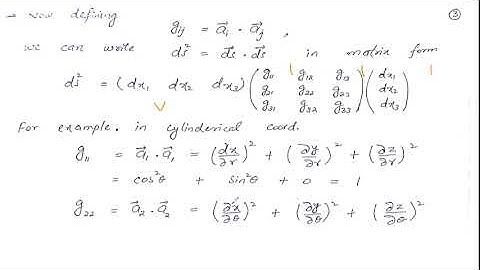 → Now defining g_ij = a⃗_i · a⃗_j , ③
we can write ds² = d⃗s · d⃗s in matrix form
ds² = (dx₁ dx₂ dx₃) (g₁₁ g₁₂ g₁₃ g₂₁ g₂₂ g₂₃ g₃₁ g₃₂ g₃₃) (dx₁ dx₂ dx₃)
For example. in cylinderical coord.
g₁₁ = a⃗₁ · a⃗₁ = (∂x/∂r)² + (∂y/∂r)² + (∂z/∂r)²
= cos²θ + sin²θ + 0 = 1
g₂₂ = a⃗₂ · a⃗₂ = (∂x/∂θ)² + (∂y/∂θ)² + (∂z/∂θ)²